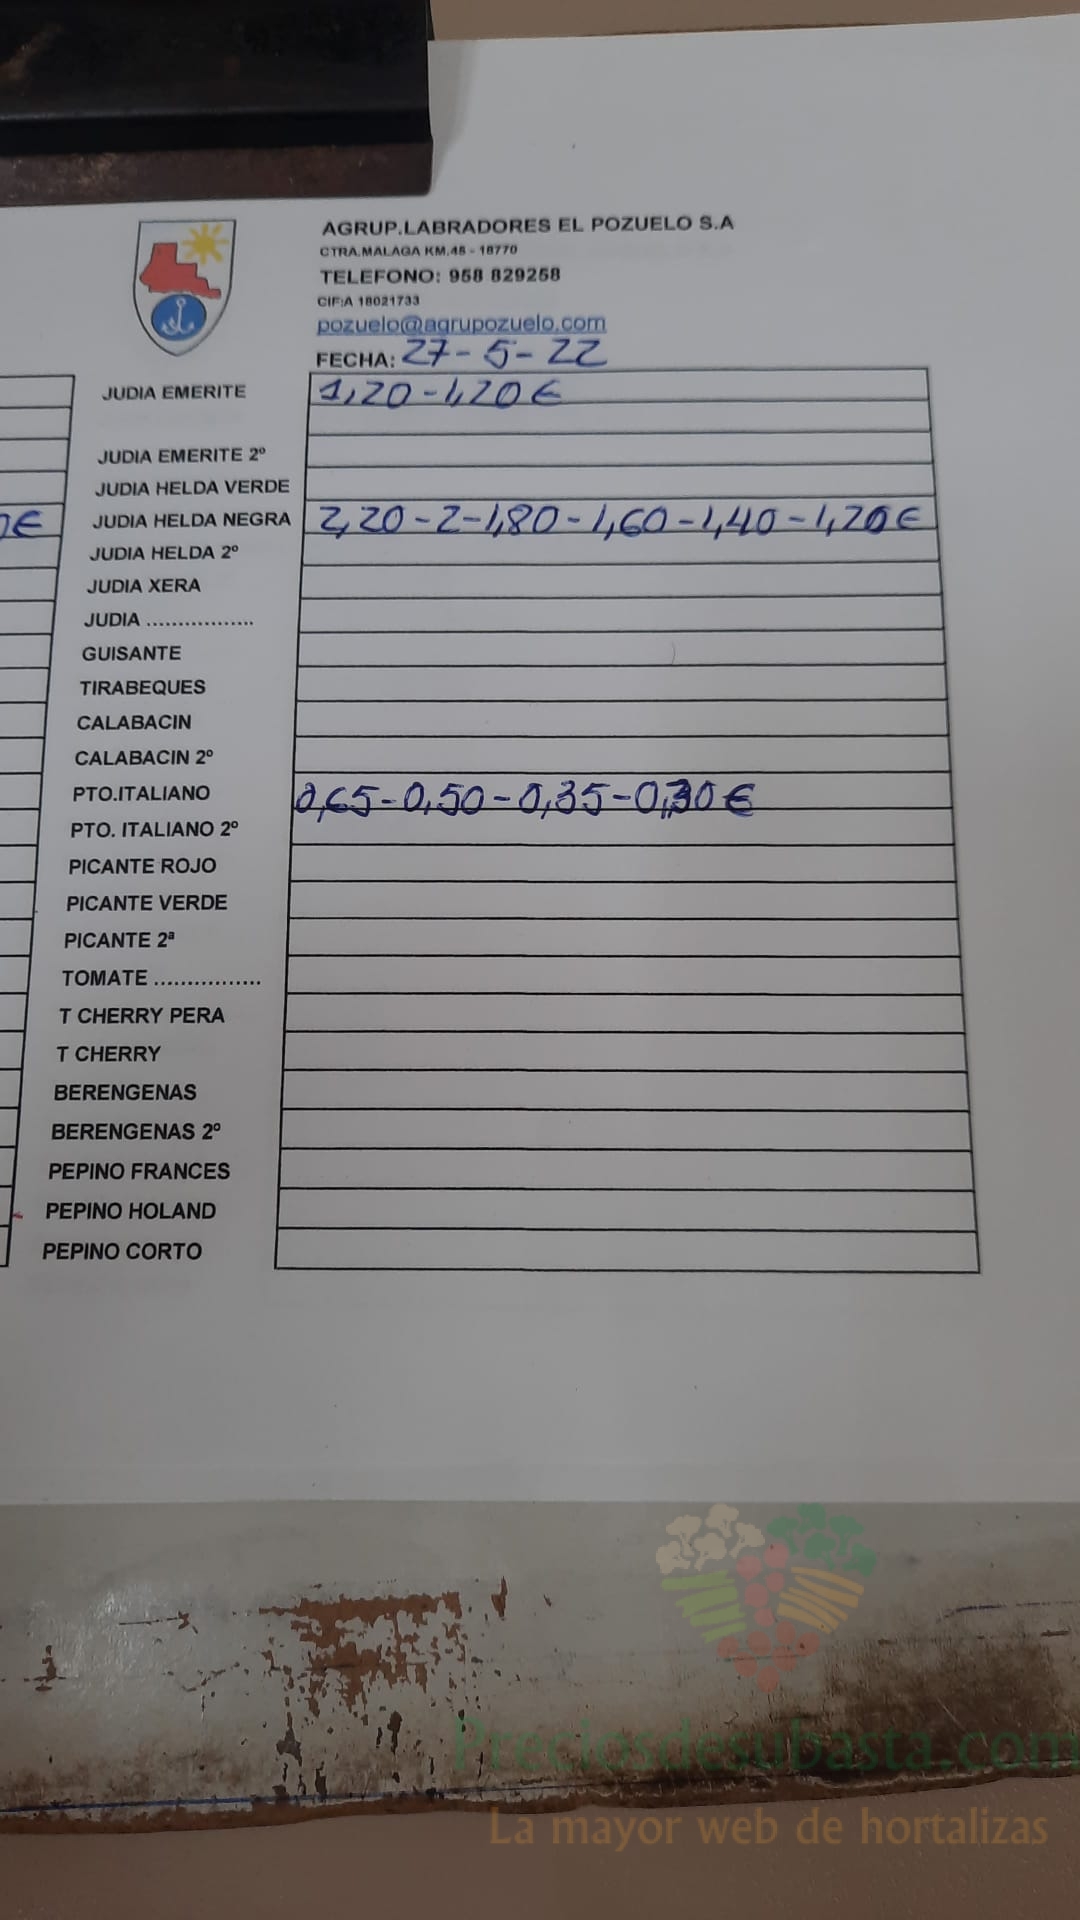 AGRUP.LABRADORES EL POZUELO S.A
CTRA.MALAGA KM.45 - 18770
TELEFONO: 958 829258
CIF:A 18021733
pozuelo@agrupozuelo.com
FECHA: 27-5-22
JUDIA EMERITE 1,20-1,20€
JUDIA EMERITE 2º
JUDIA HELDA VERDE
0€ JUDIA HELDA NEGRA 2,20-2-1,80-1,60-1,40-1,20€
JUDIA HELDA 2º
JUDIA XERA
JUDIA .................
GUISANTE
TIRABEQUES
CALABACIN
CALABACIN 2º
PTO.ITALIANO 0,65-0,50-0,35-0,30€
PTO. ITALIANO 2º
PICANTE ROJO
PICANTE VERDE
PICANTE 2ª
TOMATE ................
T CHERRY PERA
T CHERRY
BERENGENAS
BERENGENAS 2º
PEPINO FRANCES
PEPINO HOLAND
PEPINO CORTO
Preciosdesubasta.com
La mayor web de hortalizas